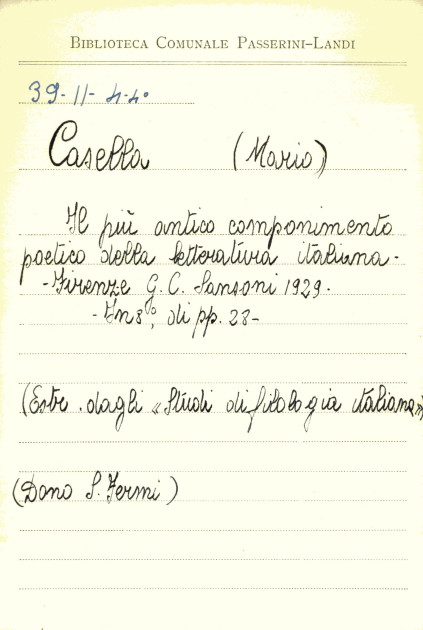 BIBLIOTECA COMUNALE PASSERINI-LANDI
39-11-4-4°
Casella (Mario)
Il più antico componimento
poetico della letteratura italiana-
-Firenze G. C. Sansoni 1929-
-In 8°, di pp. 28-
(Estr. dagli «Studi di filologia italiana»)
(Dono S. Fermi)